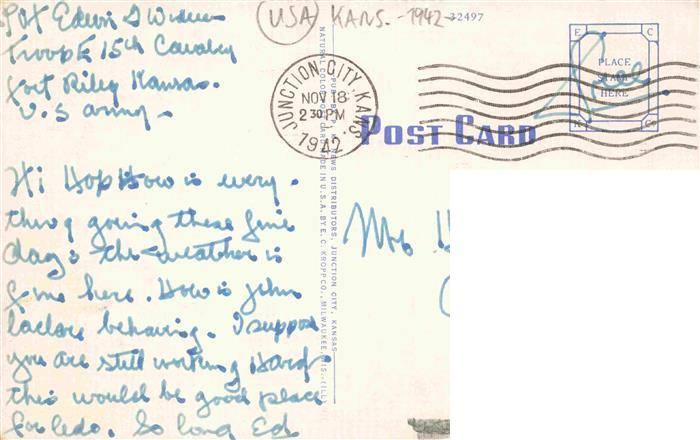 Pvt Edwin D
Troop E 15th Cavalry
Fort Riley Kansas.
U.S army.
USA KANS. - 1942 -
32497
JUNCTION CITY, KANS.
NOV 18
2 30 PM
1942
E C
PLACE
STAMP
HERE
K Co
Free
POST CARD
NATURAL COLOR POST CARD MADE IN U.S.A. BY E. C. KROPP CO., MILWAUKEE, WIS. (ILL)
PUB. BY NEWS DISTRIBUTORS, JUNCTION CITY, KANSAS
Hi Hop How is every.
thing going these fine
days the weather is
fine here. How is john
behaving. I suppose
you are still working Hard.
this would be good place
for . So long Ed
Mr. H